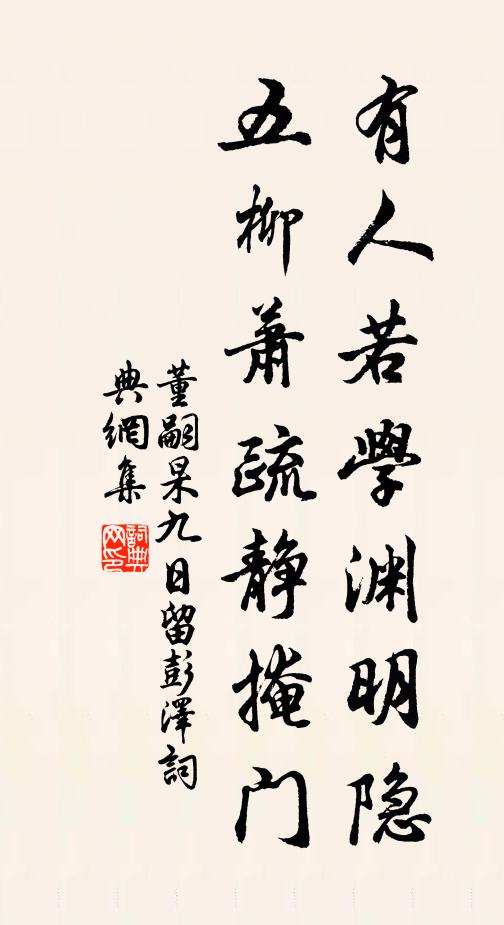 有人若學渊明隐
五柳蕭疏静掩门
董嗣杲九日留彭澤詞
典網集
詞典网印